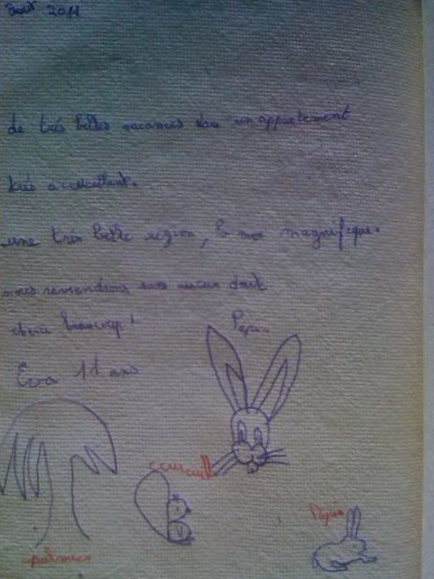 août 2011
de très belles vacances dans un appartement
très accueillant.
une très belle région, la mer magnifique.
nous reviendrons sans aucun doute
merci beaucoup !
11 ans
palmier